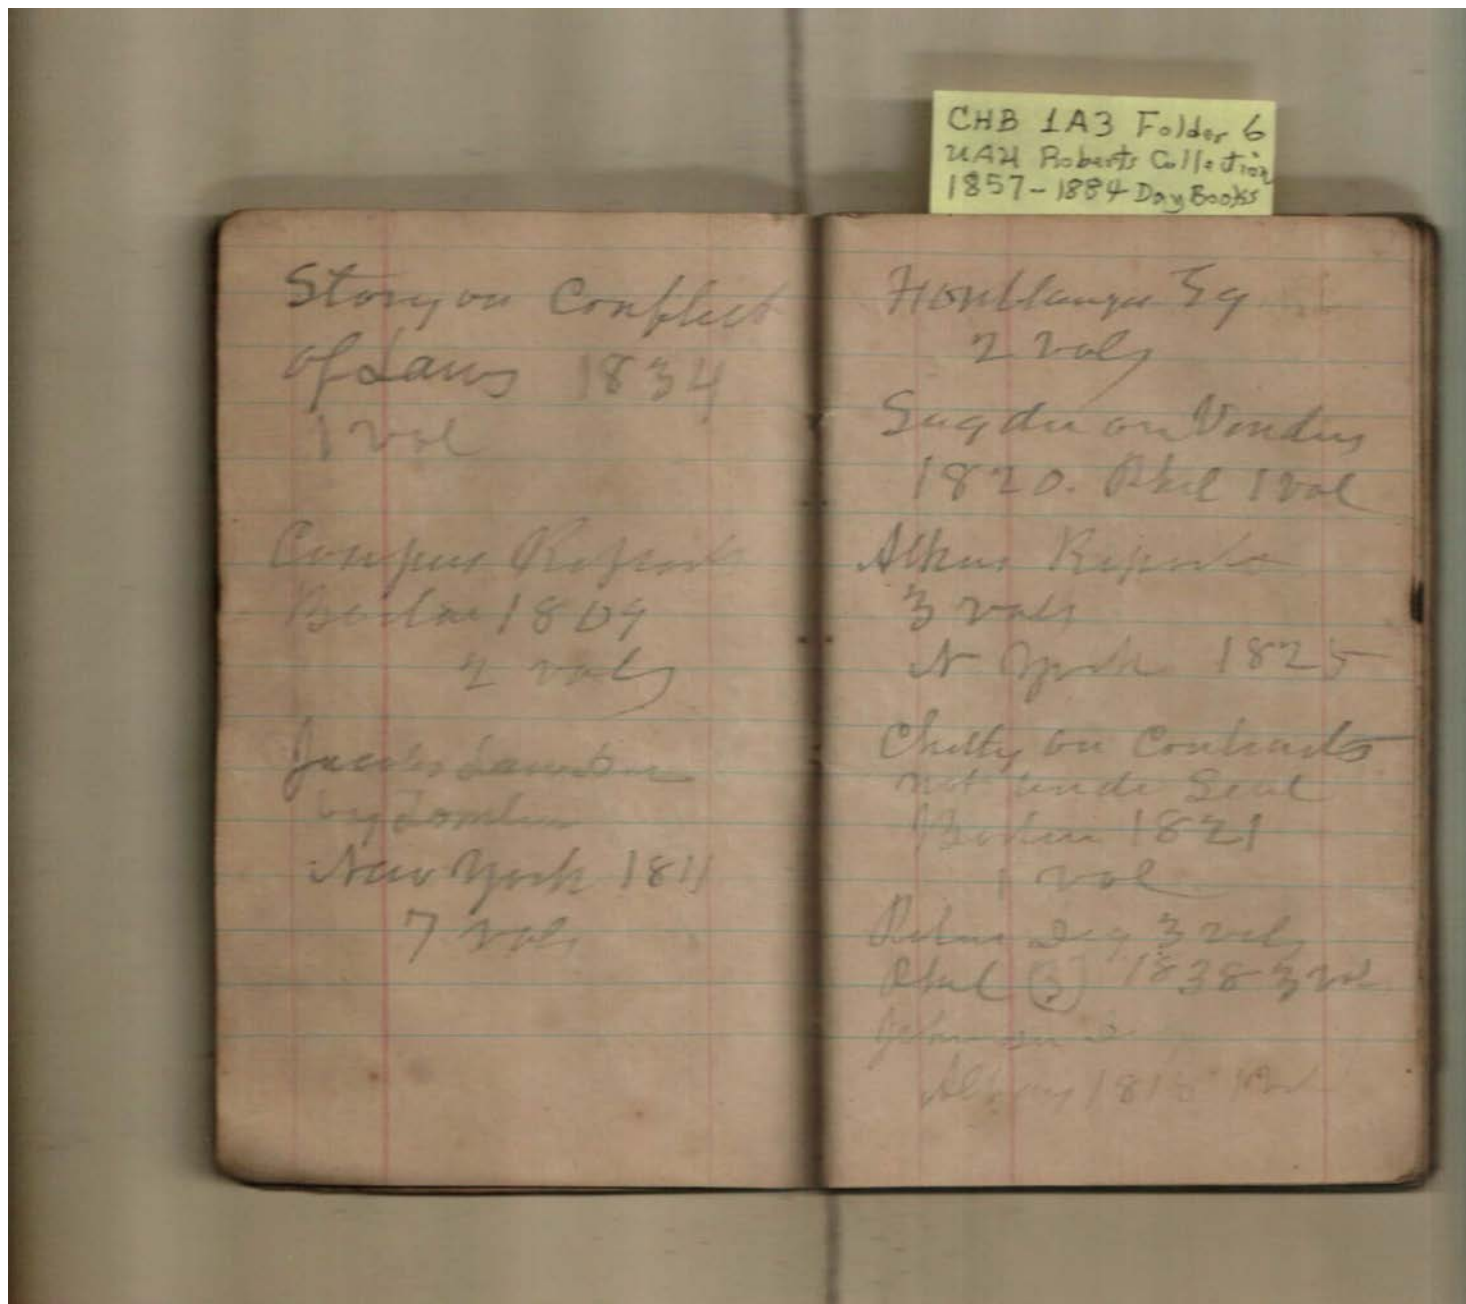 CHB 1A3 Folder 6
UAH Roberts Collection
1857-1884 Day Books
Story on Conflict
of Laws 1834
1 vol
Reports
Boston 1804
2 vols
New York 1811
7 vols
2 vols
Sugden on Vendors
1820. Phil 1 vol
Atkins Reports
3 vols
N York 1825
Chitty on Contracts
not under Seal
Boston 1821
1 vol
3 vols
Phil 1838 3 vol
Albany